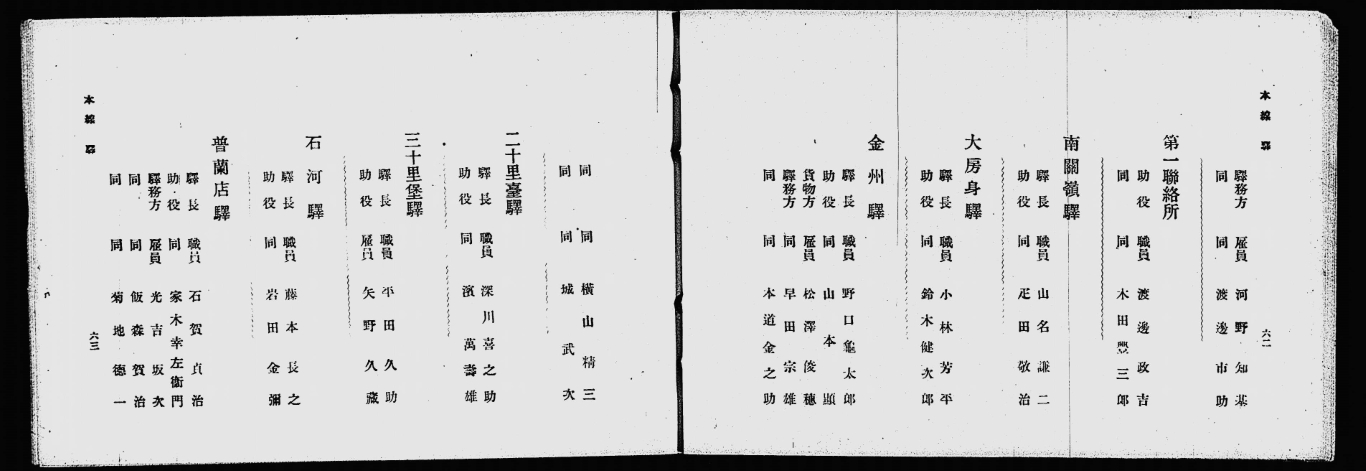 本線驛
驛務方 雇員 河野知基
同 同 渡邊市助
第一聯絡所
助役 職員 渡邊政吉
同 同 木田豐三郎
南關嶺驛
驛長 職員 山名謙二
助役 同 疋田敬治
大房身驛
驛長 職員 小林芳平
助役 同 鈴木健次郎
金州驛
驛長 職員 野口龜太郎
助役 同 山本顯
貨物方 雇員 松澤俊穗
驛務方 同 早田宗雄
同 同 本道金之助
六二
同 同 横山精三
同 同 城武次
二十里臺驛
驛長 職員 深川喜之助
助役 同 濱萬壽雄
三十里堡驛
驛長 職員 平田久助
助役 雇員 矢野久藏
石河驛
驛長 職員 藤本長之
助役 同 岩田金彌
普蘭店驛
驛長 職員 石賀貞治
助役 同 家木幸左衞門
驛務方 雇員 光吉坂次
同 同 飯森賀治
同 同 菊地德一
本線驛
六三